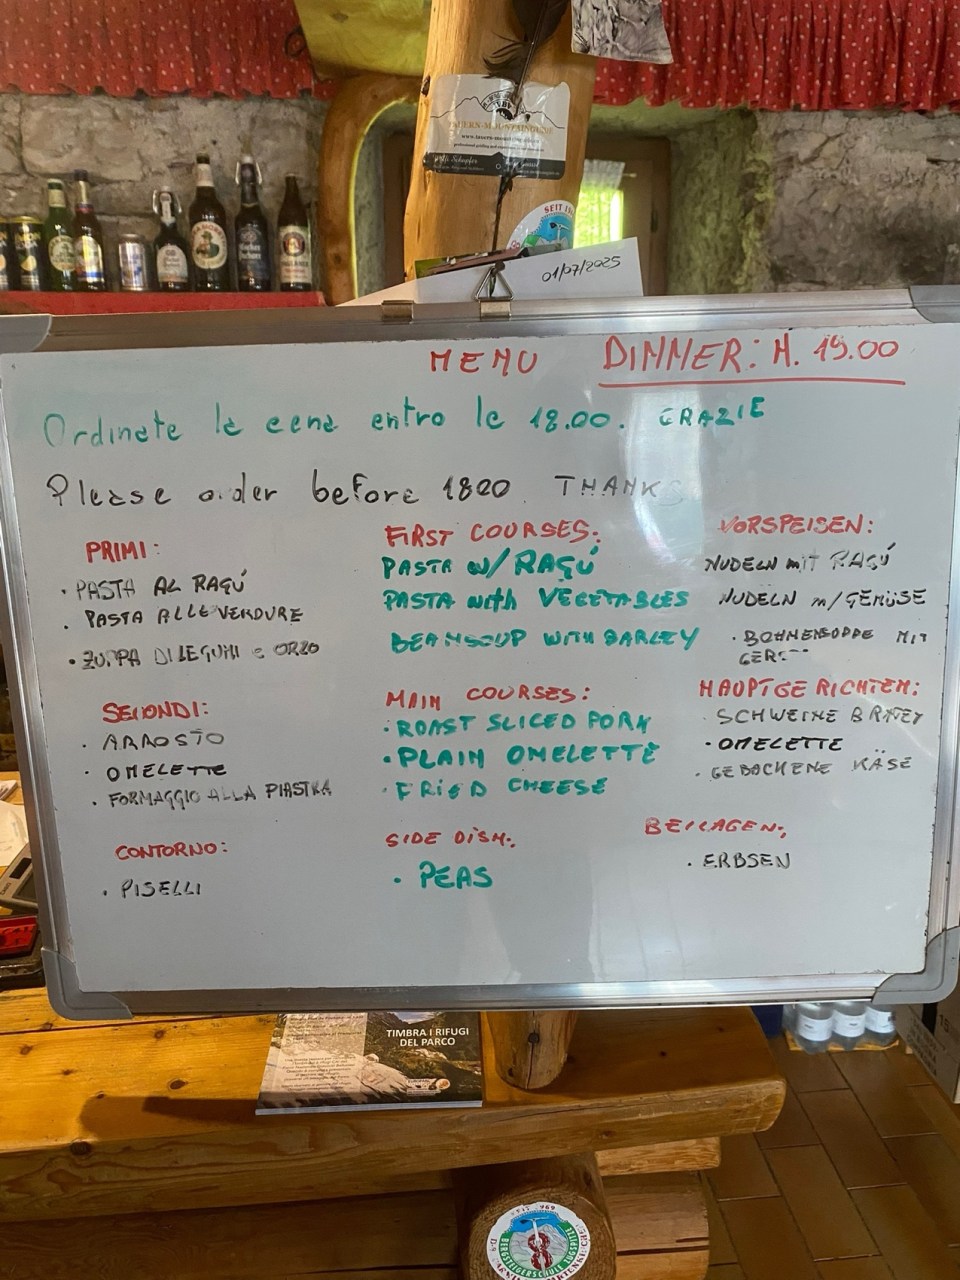 TAUERN-MOUNTAINGUIDE
SEIT 19
01/07/2025
MENU DINNER: H. 19.00
Ordinate la cena entro le 18.00. GRAZIE
Please order before 1800 THANKS
PRIMI:
• PASTA AL RAGÚ
• PASTA ALLE VERDURE
• ZUPPA DI LEGUMI e ORZO
SECONDI:
• ARROSTO
• OMELETTE
• FORMAGGIO ALLA PIASTRA
CONTORNO:
• PISELLI
FIRST COURSES:
PASTA W/ RAGÚ
PASTA with VEGETABLES
BEANSOUP WITH BARLEY
MAIN COURSES:
• ROAST SLICED PORK
• PLAIN OMELETTE
• FRIED CHEESE
SIDE DISH:
• PEAS
VORSPEISEN:
NUDELN MIT RAGÚ
NUDELN m/ GEMÜSE
• BOHNENSOPPE MIT
HAUPTGERICHTEN:
• SCHWEINE
• OMELETTE
• GEBACHENE KÄSE
BEILAGEN:
• ERBSEN
TIMBRA I RIFUGI
DEL PARCO
SEIT 1969